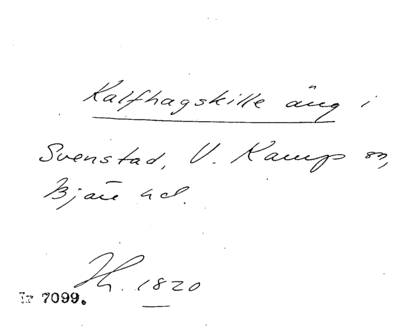 Kalfhagskille äng i
Svenstad, V. Kamp sn,
Bjäre hd.
Hh. 1820
Ir 7099.